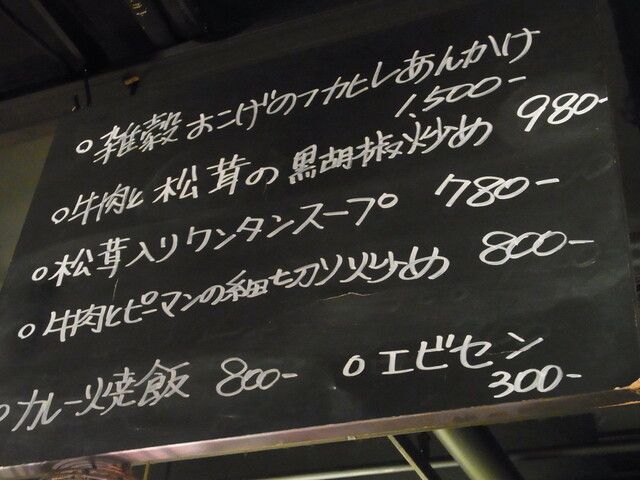 ○雑穀おこげのフカヒレあんかけ
1,500-
○牛肉と松茸の黒胡椒炒め 980-
○松茸入りワンタンスープ 780-
○牛肉とピーマンの細切り炒め 800-
○カレー焼飯 800- ○エビセン
300-